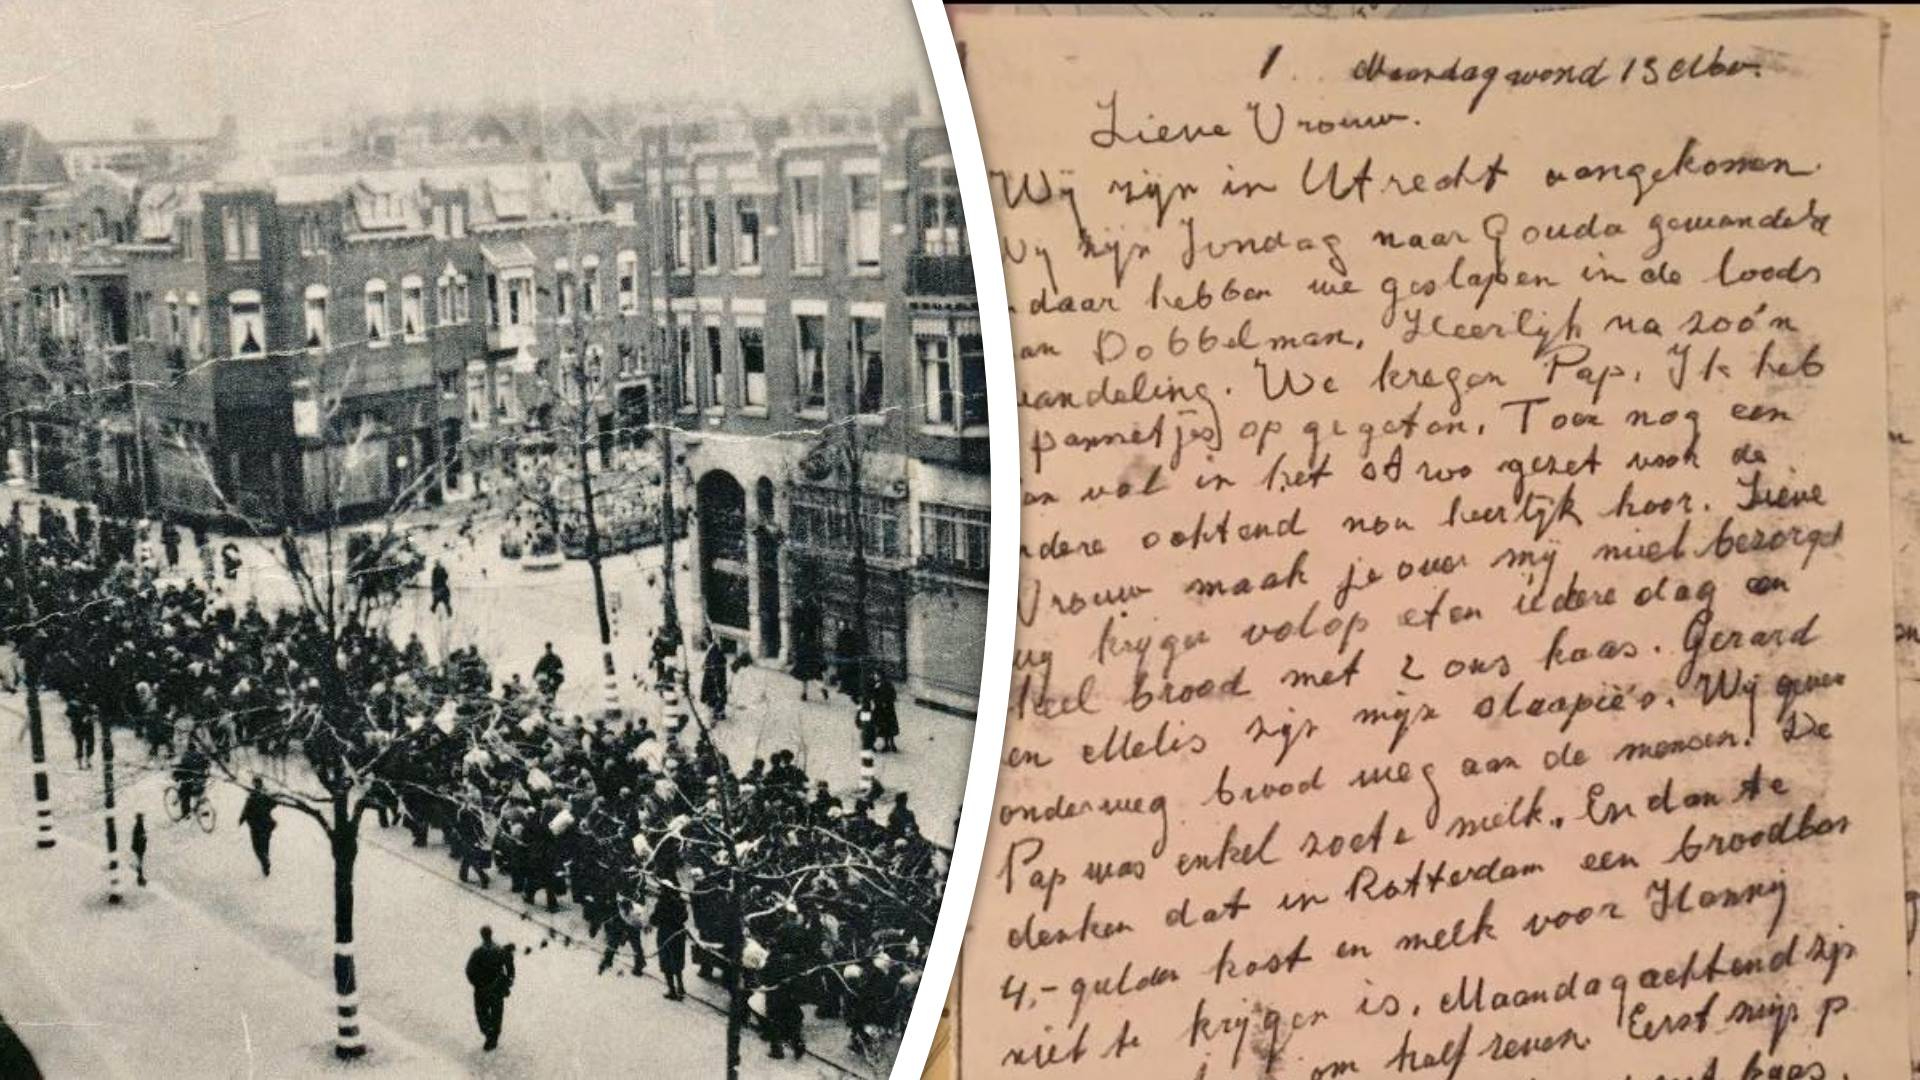 1. Maandagavond 13 Nov.
Lieve Vrouw.
Wij zijn in Utrecht aangekomen.
Wij zijn Zondag naar Gouda gewandeld
daar hebben we geslapen in de loods
an Dobbelman. Heerlijk na zoo'n
andeling. We kregen Pap. Ik heb
pannetjes op gegeten. Toen nog een
an vol in het stroo gezet voor de
ndere ochtend nou heerlijk hoor. Lieve
Vrouw maak je over mij niet bezorgd
krijgen volop eten iedere dag een
heel brood met 2 ons kaas. Gerard
en Melis zijn mijn slaapie's. Wij geven
onderweg brood weg aan de mensen. De
Pap was enkel zoete melk. En dan te
denken dat in Rotterdam een broodbon
4,- gulden kost en melk voor Hanny
niet te krijgen is. Maandagochtend zijn
om half zeven. Eerst mijn p
kaas.